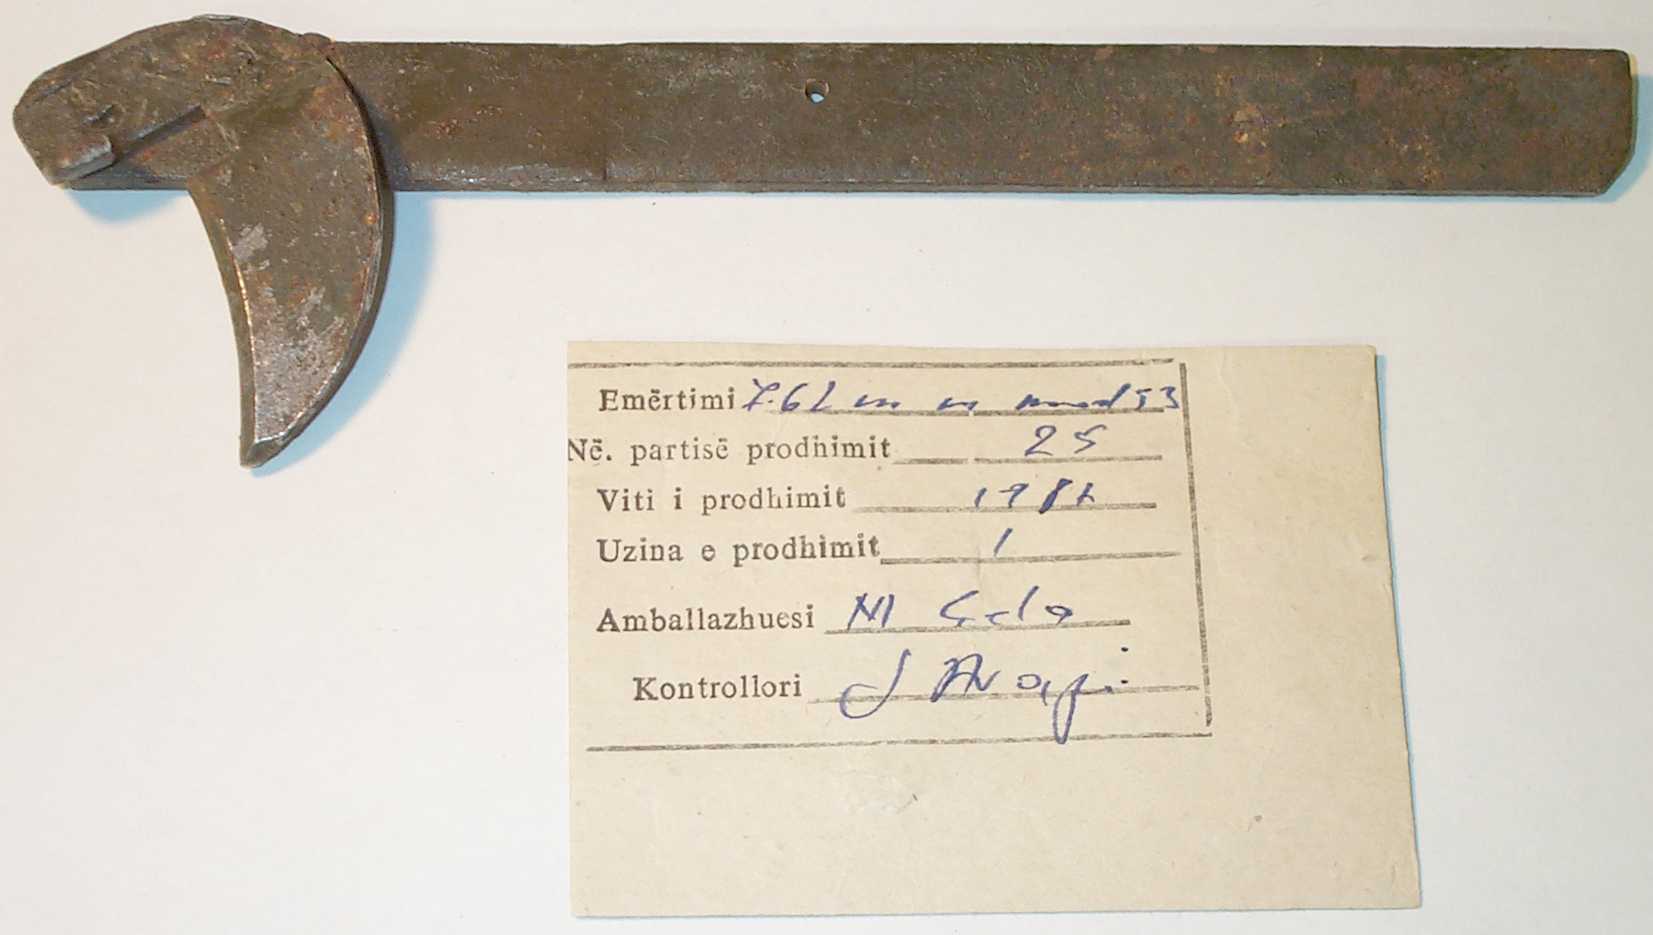 Emërtimi 7.62 m m mod 53
Në. partisë prodhimit 25
Viti i prodhimit 1982
Uzina e prodhimit 1
Amballazhuesi M
Kontrollori J Arapi